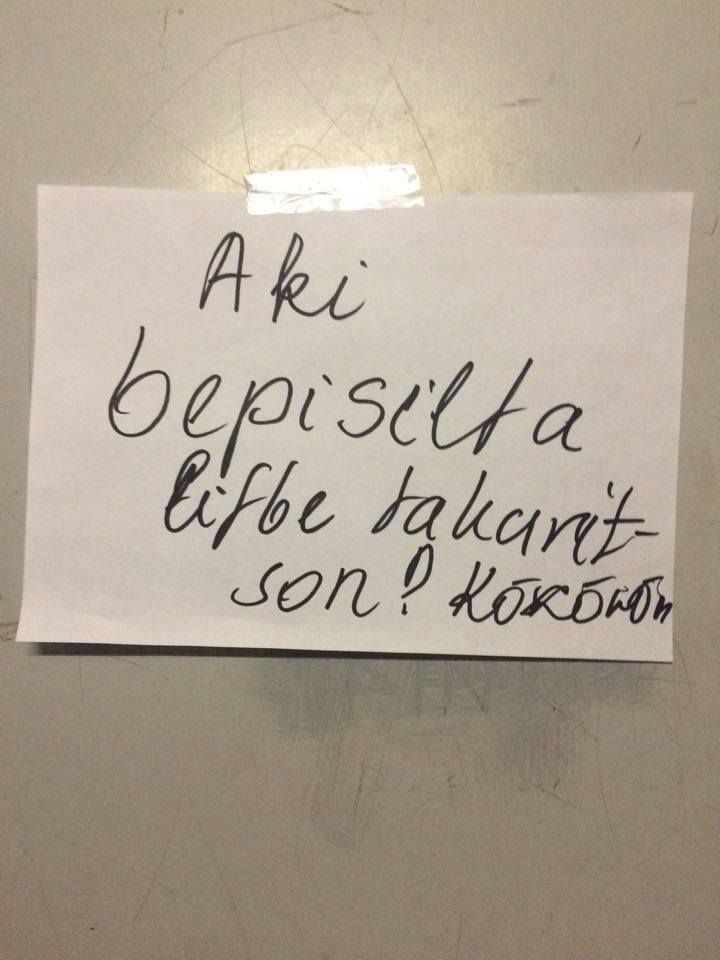 Aki
bepisilta
lifbe takarit-
son! Kōsōnōn